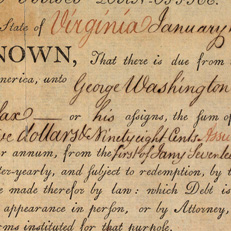 State of Virginia January
NOWN, That there is due from
merica, unto George Washington
fax — or his assigns, the sum of
ive dollars & Ninety eight Cents
r annum, from the first of Jany Seventee
ter-yearly, and subject to redemption, by
e made therefor by law: which Debt is
appearance in person, or by Attorney,
rms instituted for that purpose.